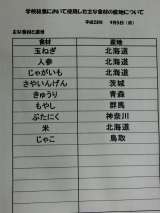 学校給食において使用した主な食材の産地について
平成23年 9月5日（月）
主な食材と産地
食材 産地
玉ねぎ 北海道
人参 北海道
じゃがいも 北海道
さやいんげん 茨城
きゅうり 青森
もやし 群馬
ぶたにく 神奈川
米 北海道
じゃこ 鳥取